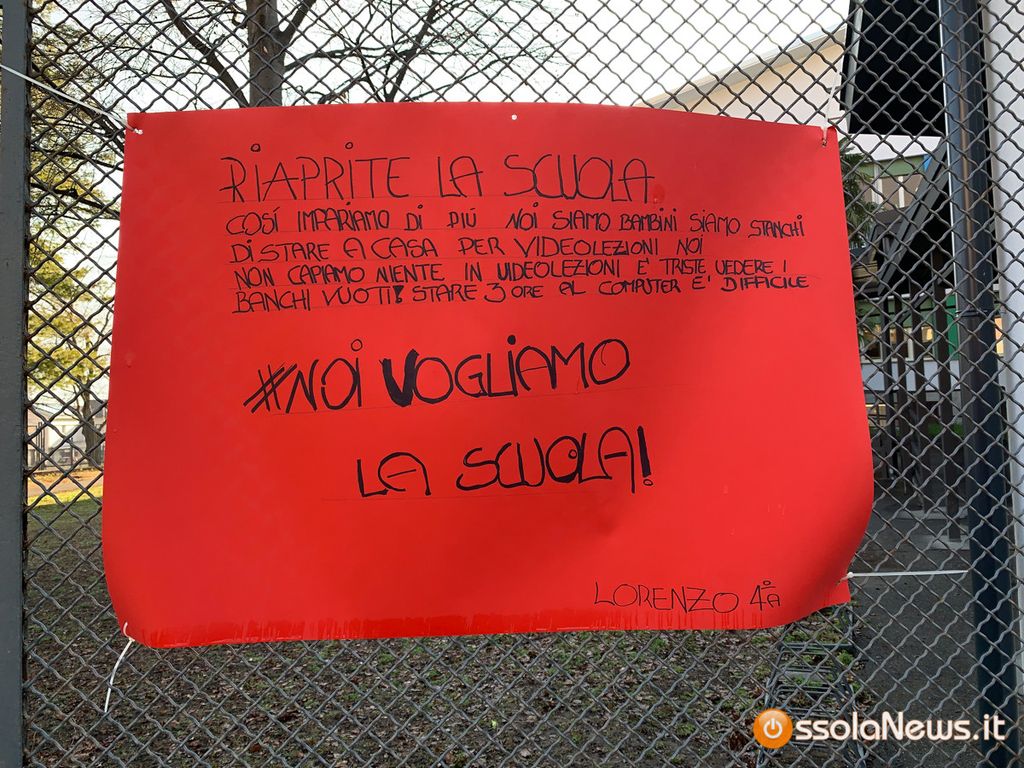 RIAPRITE LA SCUOLA
COSÍ IMPARIAMO DI PIÚ NOI SIAMO BAMBINI SIAMO STANCHI
DI STARE A CASA PER VIDEOLEZIONI NOI
NON CAPIAMO NIENTE IN VIDEOLEZIONI E' TRISTE VEDERE I
BANCHI VUOTI! STARE 3 ORE al COMPUTER E' DIFFICILE
#NOI VOGLIAMO
LA SCUOLA!
LORENZO 4ªA
OssolaNews.it